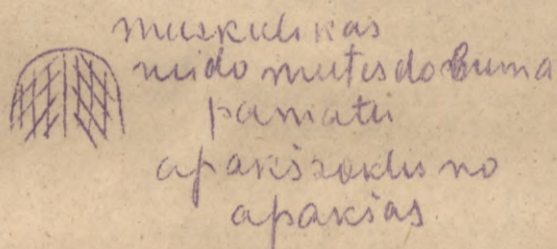 muskuli kas
veido mutes dobuma
pamatu
apakšžoklis no
apakšas